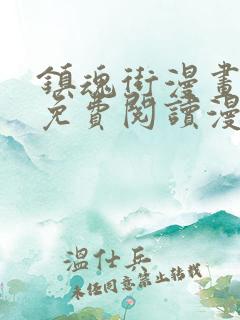 鎮魂街漫畫
免費閱讀漫
溫仕兵
未經同意禁止轉載